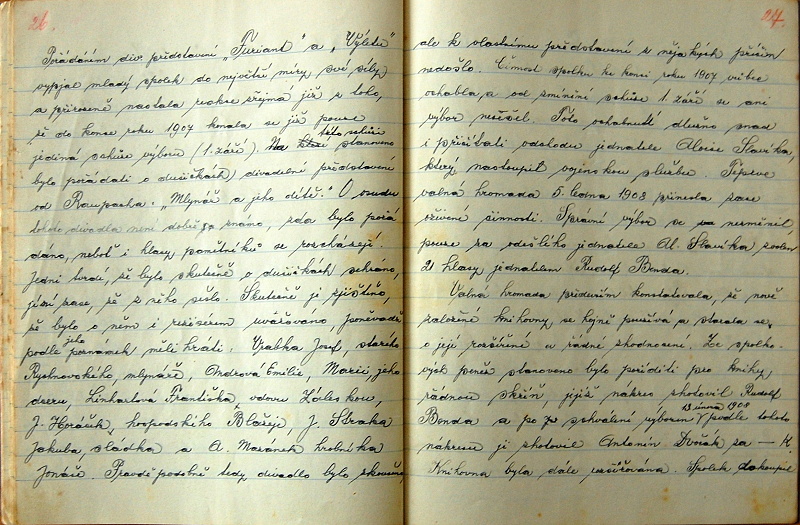 26.
Pořádáním div. představení „Furiant" a „Výletu"
vypjal mladý spolek do největší míry své síly,
a přirozeně nastala reakce zřejmá již z toho,
že do konce roku 1907 konala se již pouze
jediná schůze výboru (1. září). Na této schůzi stanoveno
bylo pořádati o dušičkách divadelní představení
od Raupacha: „Mlynář a jeho dítě." O osudu
tohoto divadla není dobře známo, zda bylo pořá
dáno, neboť i hlasy pamětníků se rozcházejí.
Jedni tvrdí, že bylo skutečně o dušičkách sehráno,
jiní zase, že z něho sešlo. Skutečně je zjištěno,
že bylo o něm i režisérem uvažováno, poněvadž
podle jeho poznámek měli hráti: Vrabka Josef, starého
Rychnovského, mlynáře, Ondrová Emilie, Marii jeho
dceru Linhartová Františka vdovu Kálskou,
J. Horáček, hospodského Blažeje, J. Straka
Jakuba, sládka a A. Mazánek hrobníka
Jonáše. Pravděpodobně tedy divadlo bylo zkoušeno,
27.
ale k vlastnímu představení z nějakých příčin
nedošlo. Činnost spolku ke konci roku 1907 vůbec
ochabla, a od zmíněné schůze 1. září se ani
výbor nesešel. Toto ochabnutí dlužno snad
i přičítati odchodu jednatele Aloise Slavíka,
který nastoupil vojenskou službu. Teprve
valná hromada 5. ledna 1908 přinesla zase
oživení činnosti. Správní výbor se nezměnil,
pouze za odešlého jednatele Al. Slavíka zvolen
21 hlasy jednatelem Rudolf Benda.
Valná hromada především konstatovala, že nově
založené knihovny se hojně používá a starala se
o její rozšíření a řádné zhodnocení. Ze spolko-
vých peněz stanoveno bylo poříditi pro knihy
řádnou skříň, jejíž nákres zhotovil Rudolf
Benda a po schválení výborem 13 února 1908 podle tohoto
nákresu ji zhotovil Antonín Dvořák za — K.
Knihovna byla dále rozšiřována. Spolek dokoupil